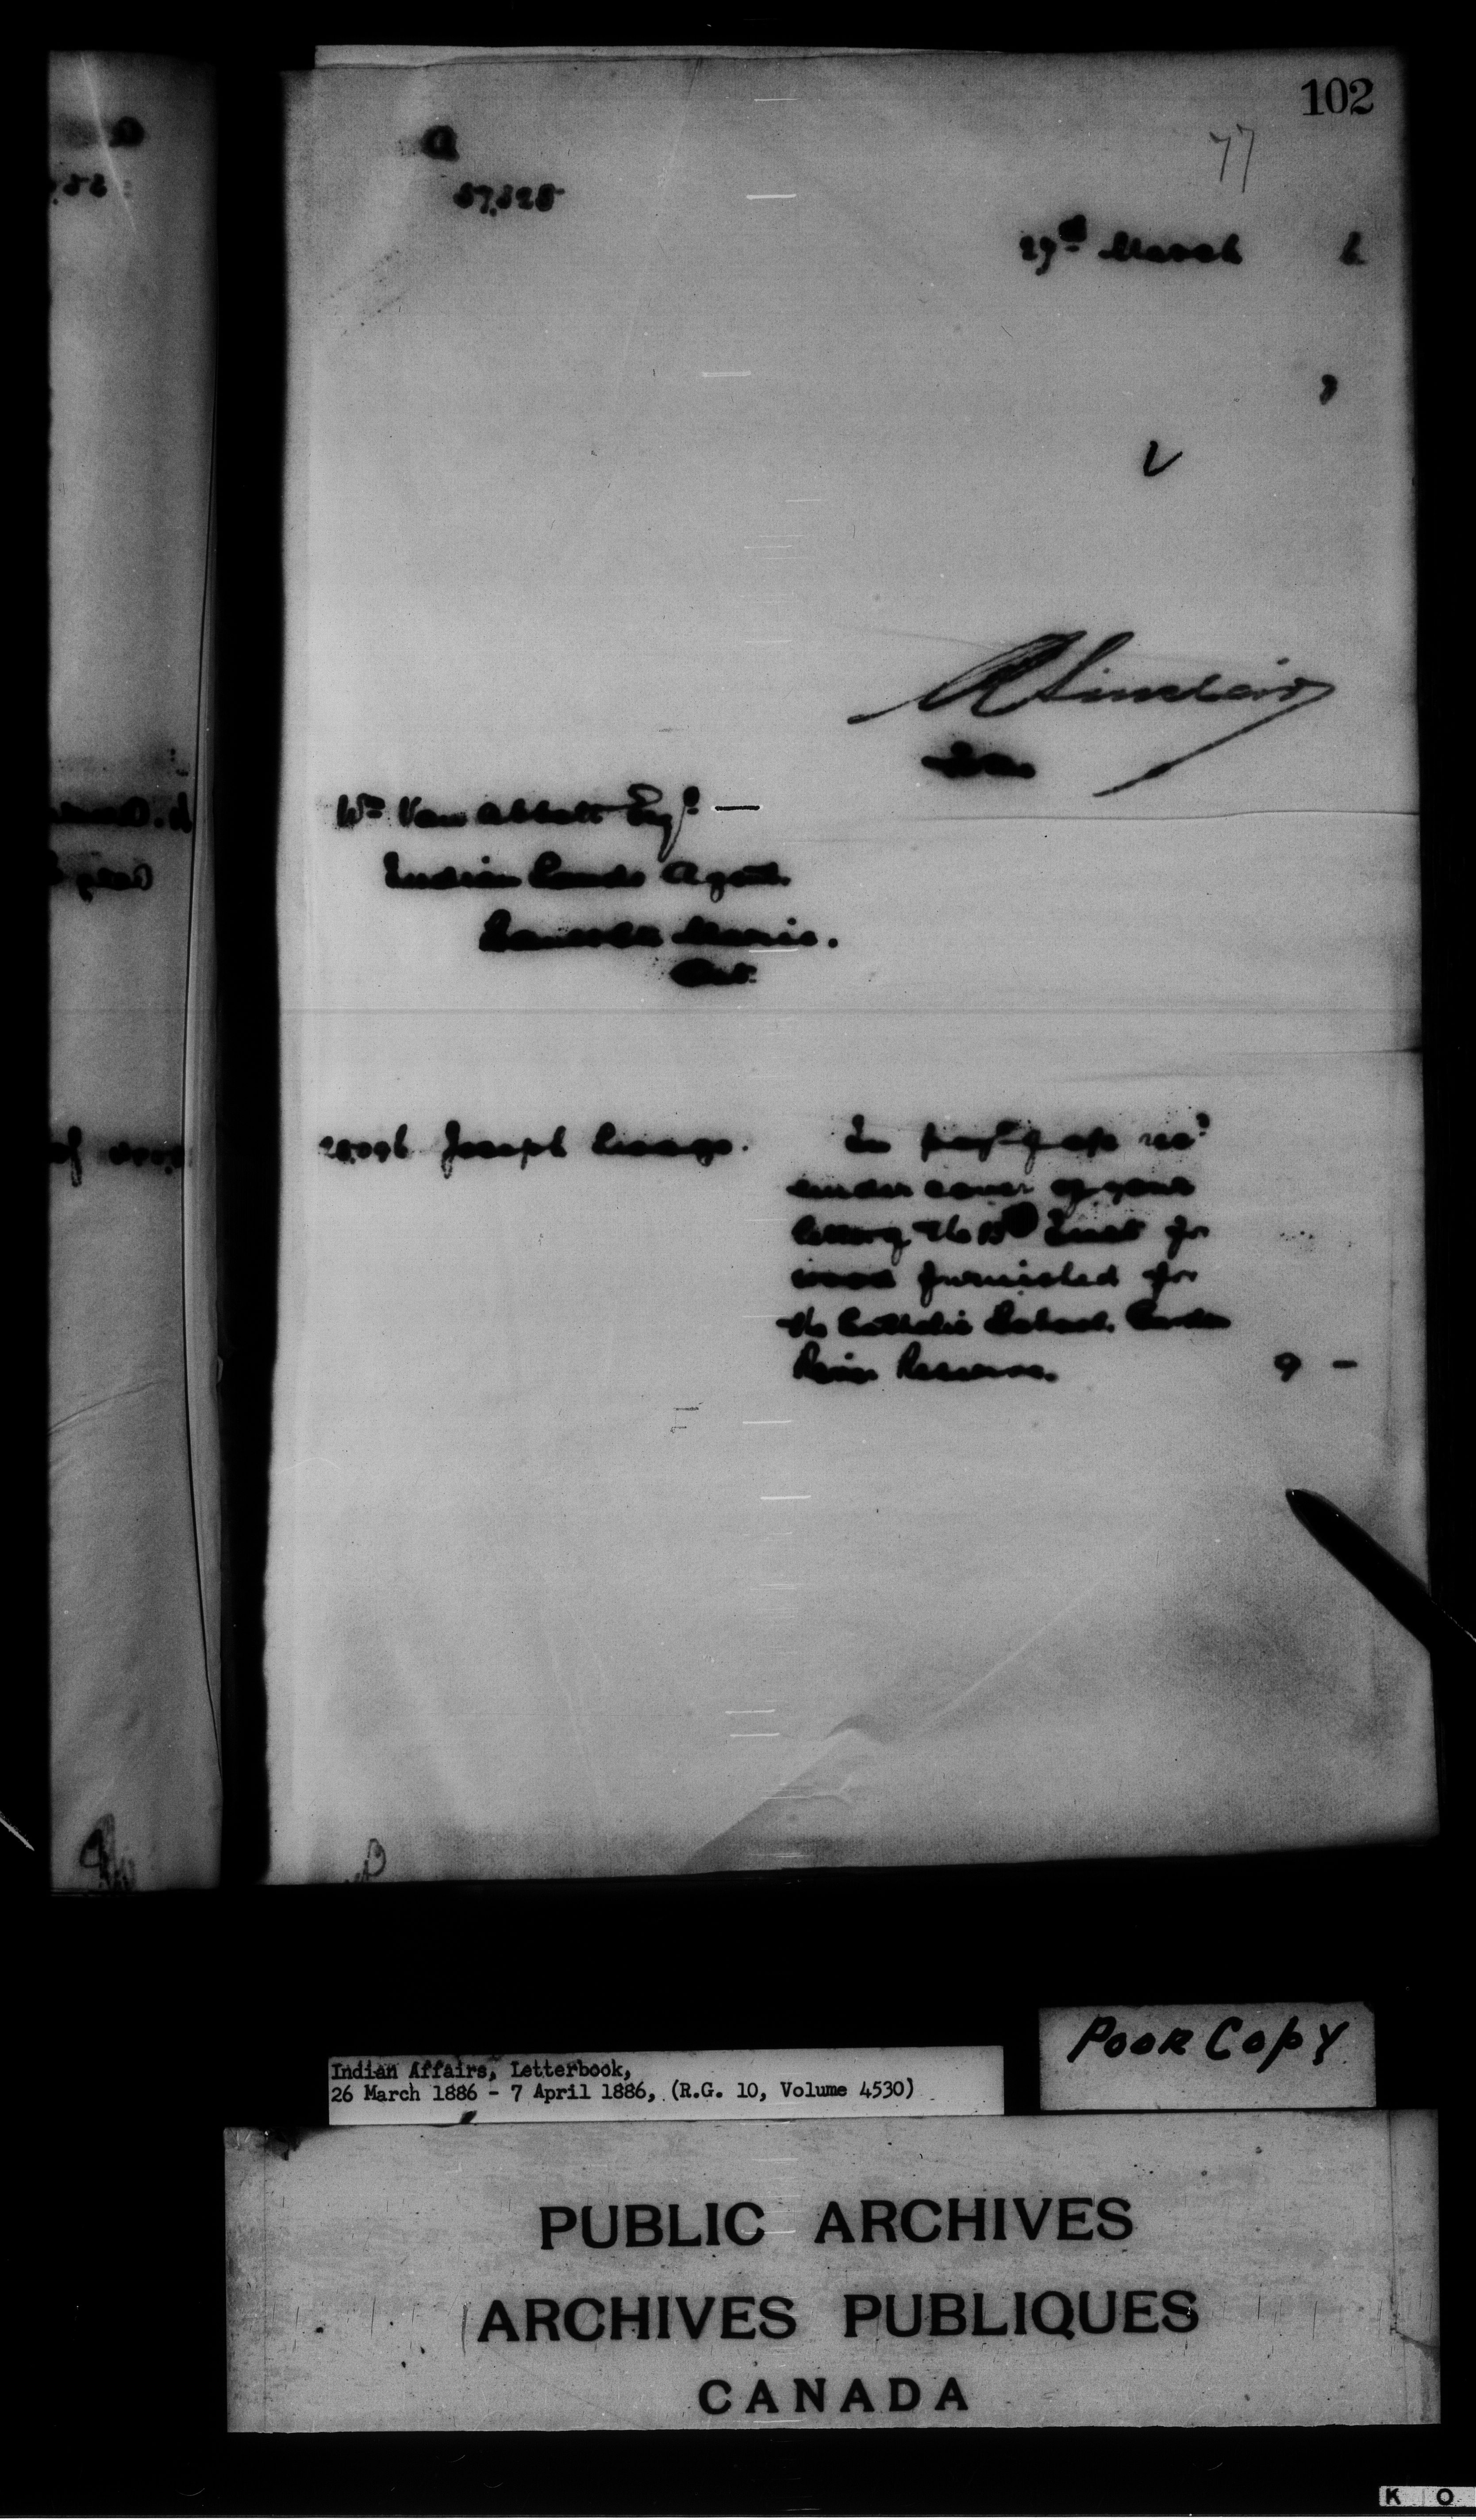 102
77
57,325
29th March 6
R Sinclair
Wm Van Abbott Esqr —
Indian Lands Agent
Sault Ste Marie.
Ont.
Joseph
In payt of a/c recd
under cover of your
letter of the 15th Inst for
wood furnished for
the Catholic School Garden
River Reserve. 9 —
Poor Copy
Indian Affairs, Letterbook,
26 March 1886 - 7 April 1886, (R.G. 10, Volume 4530)
PUBLIC ARCHIVES
ARCHIVES PUBLIQUES
CANADA
K O